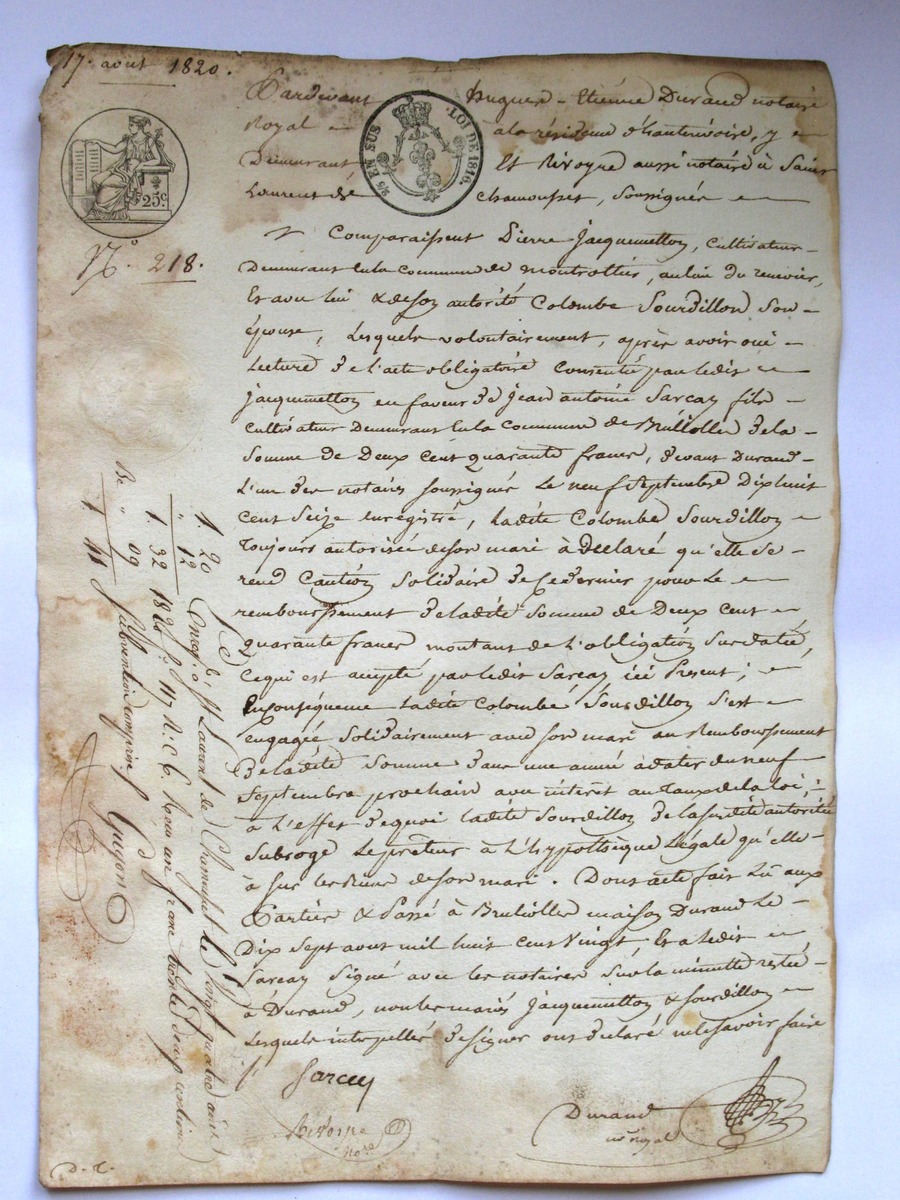 17. août 1820.
Pardevant hugues-Etiénne Durand notaire
Royal à la résidence d'hauterivoire, y
Demeurant Et Rivoyre aussi notaire à Saint
Laurent dé Chamousset, soussignés
25 EN SUS
LOI DE 1816.
25c.
N.º 218.
Comparaissent Pierre Jacquemetton, cultivateur
Demeurant En la commune de montrottier, au lieu du
Et avec lui & de son autorité Colombe Sourdillon Son
épouse, Lesquels volontairement, après avoir oui
Lecture de l'acte obligatoire Consenti par ledit
jacquemetton en faveur de Jean antoine Sarcay fils
cultivateur Demeurant En la commune de Brullolles de la
Somme de Deux cent quarante francs, devant Durand
L'un des notaires soussignés Le neuf Septembre Dixhuit
Cent Seize enregistré, Ladite Colombe Sourdillon
Toujours autorisée de son mari à Déclaré qu'elle se
rend Caution Solidaire de ce dernier pour Le
remboursement de ladite Somme de Deux cent
quarante francs montant de l'obligation Susdatée,
Ce qui est accepté par ledit Sarcay ici Présent ;
En conséquence Ladite Colombe Sourdillon S'est
engagée Solidairement avec son mari au Remboursement
De ladite Somme dans une année à dater du neuf
Septembre prochain avec intéret au Taux de la loi ;
à L'effet de quoi ladite Sourdillon de la susdite autorité
Subroge Le prêteur à L'hypothèque Légale qu'elle
à sur les Biens de son mari. Dont acte fait Lû aux
Parties & Passé à Brulolles maison Durand Le
Dix Sept aout mil huit cent Vingt Et a ledit
Sarcay Signé avec les notaires Sur la minutte restée
à Durand, non les mariés Jacquemetton & Sourdillon
Lesquels interpellés de signer ont déclaré ne le savoir faire
Sarcey
Durand
nre royal
Nore
D. C.
1. 20
" 12
1. 32
Be " 09
1 41
Enregé à St Laurent de Chamousset le vingt quatre août
1820 f. 117 R. C. 6 Reçu un franc trente deux centimes
Subvention comprise Guyon